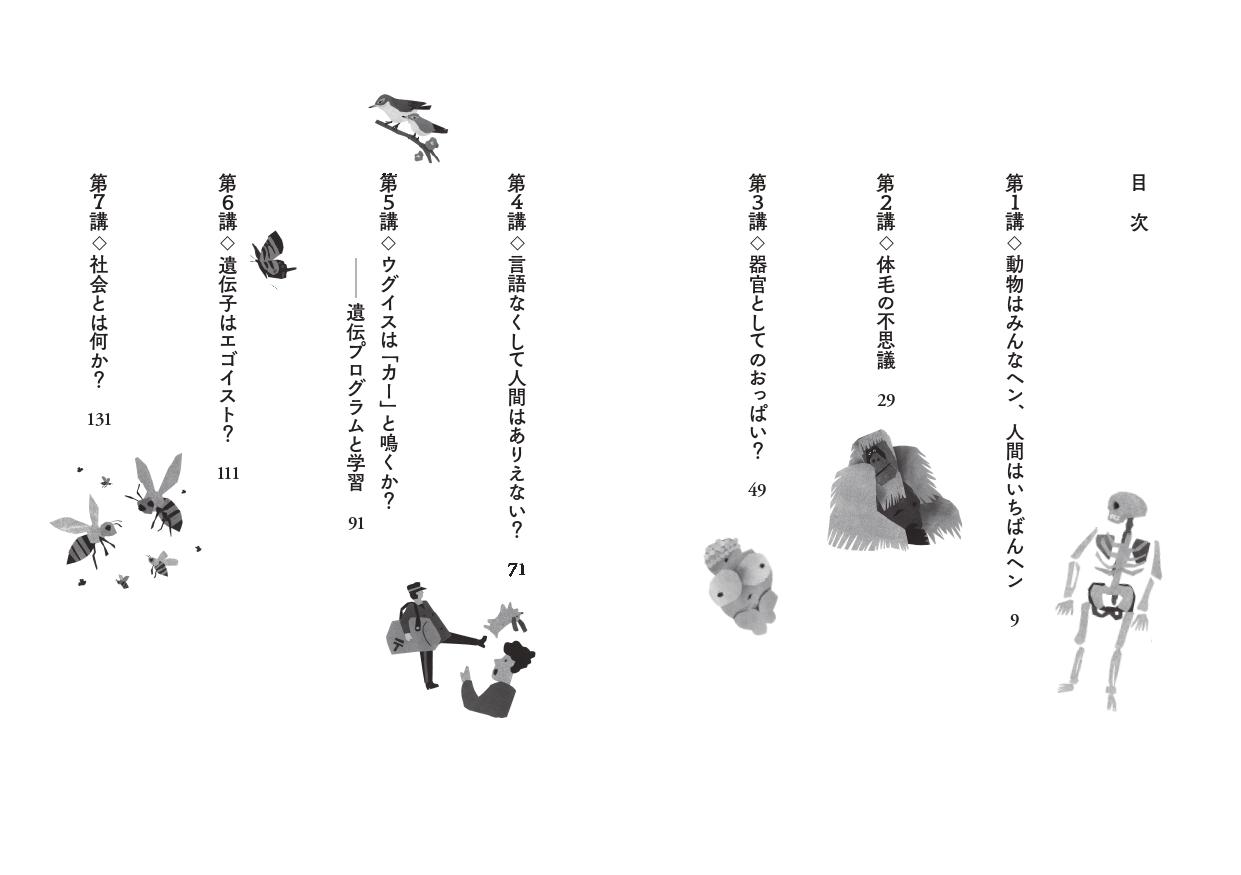 目次
第1講◇動物はみんなヘン、人間はいちばんヘン 9
第2講◇体毛の不思議 29
第3講◇器官としてのおっぱい？ 49
第4講◇言語なくして人間はありえない？ 71
第5講◇ウグイスは「カー」と鳴くか？
――遺伝プログラムと学習 91
第6講◇遺伝子はエゴイスト？ 111
第7講◇社会とは何か？ 131